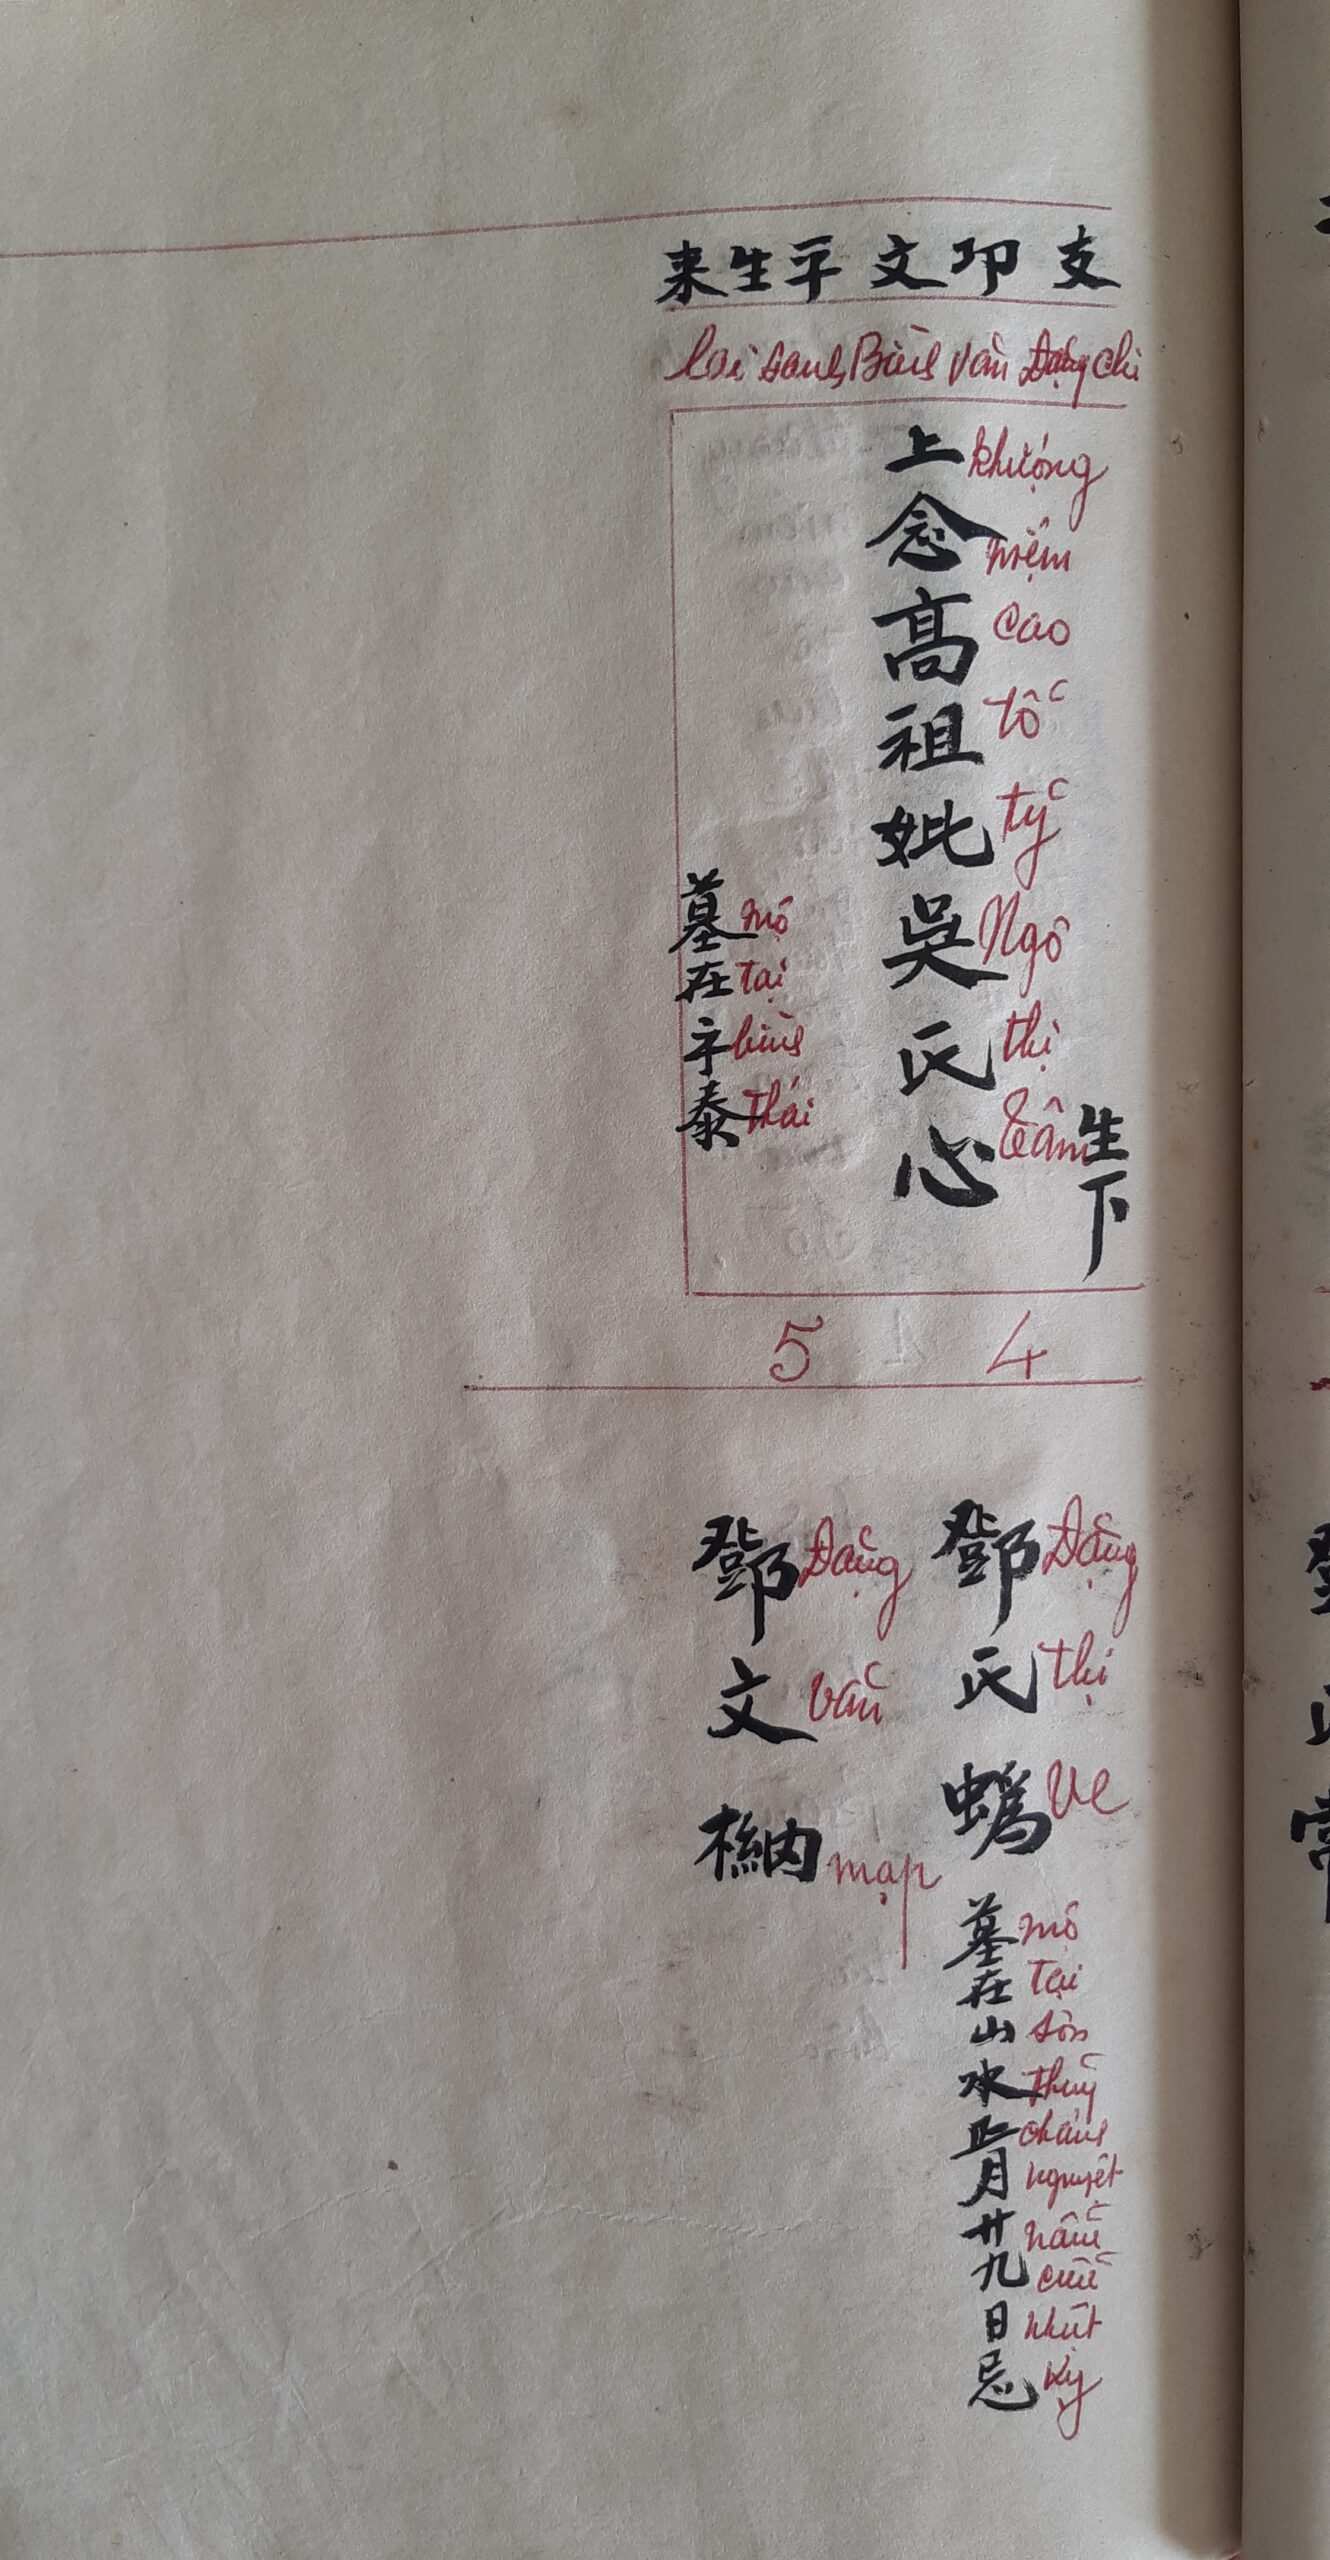 来生平文卭支
lai sanh Bình văn Đặng chi
生下
上念髙祖妣吳氏心
khượng niệm cao tổ tỷ Ngô thị Tâm
墓在平泰
mộ tại bình Thái
4
5
鄧氏蟡
Đặng thị Ve
墓在山水正月廿九日忌
mộ Tại sơn thủy chánh nguyệt nhẫm cửu nhựt kỵ
鄧文
Đặng văn mạp